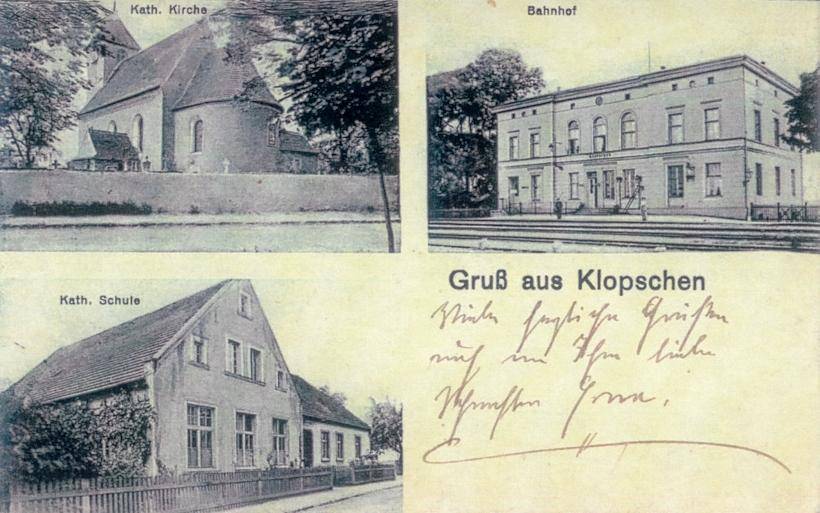 Kath. Kirche
Bahnhof
Kath. Schule
Gruß aus Klopschen
Viele herzliche Grüßen
auch
liebe
Erna.